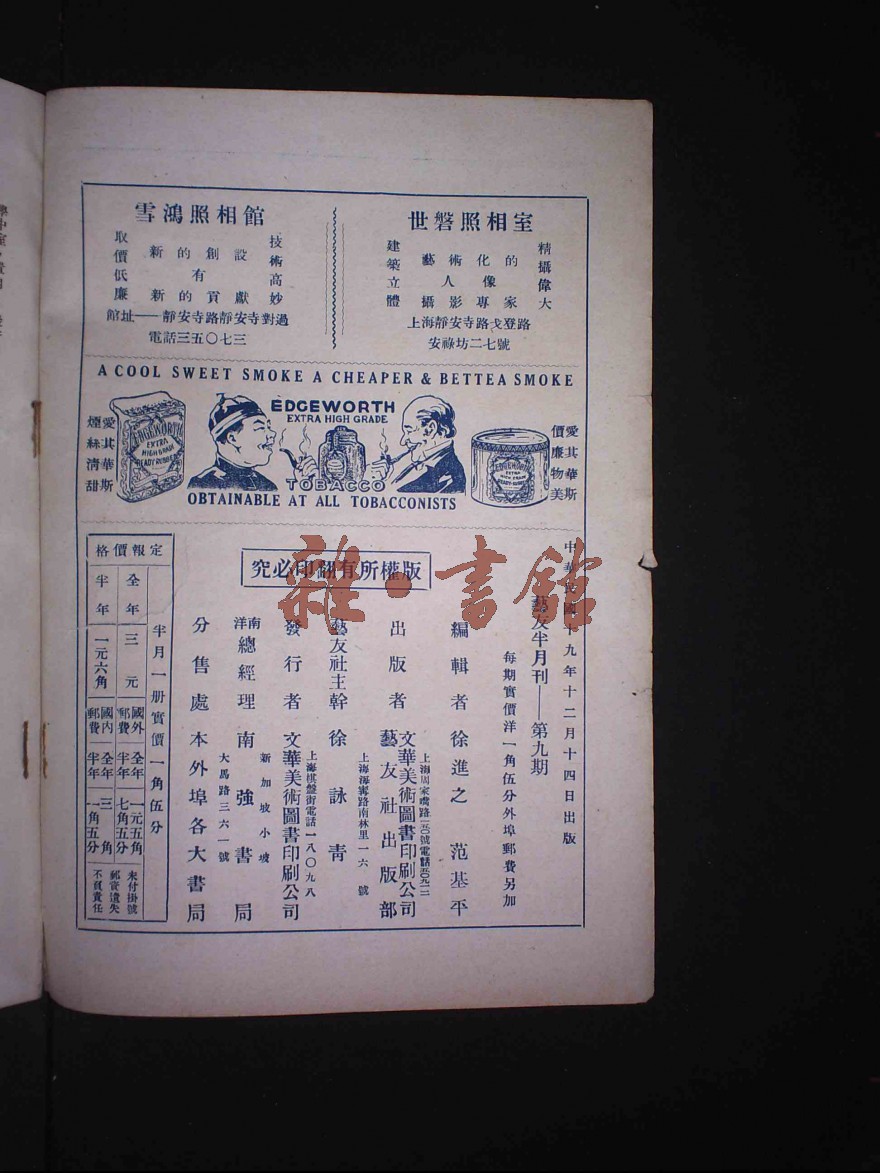 世磐照相室
精攝偉大
藝術化的
人像
攝影專家
建築立體
上海靜安寺路戈登路
安祿坊二七號
雪鴻照相館
技術高妙
新的創設
有
新的貢獻
取價低廉
館址——靜安寺路靜安寺對過
電話三五〇七三
A COOL SWEET SMOKE A CHEAPER & BETTEA SMOKE
愛其華斯
煙絲清甜
EDGEWORTH
EXTRA
HIGH GRADE
READY RUBBED
EDGEWORTH
EXTRA HIGH GRADE
TOBACCO
OBTAINABLE AT ALL TOBACCONISTS
EDGEWORTH
EXTRA
愛其華斯
價廉物美
中華民國十九年十二月十四日出版
藝友半月刊——第九期
每期實價洋一角伍分外埠郵費另加
版權所有翻印必究
編輯者 徐進之 范基平
上海周家嘴路
文華美術圖書印刷公司
出版者 藝友社出版部
藝友社主幹 徐詠青
上海海甯路南林里一六號
上海棋盤街電話一八〇九八
發行者 文華美術圖書印刷公司
新加坡小坡
南洋總經理 南強書局
大馬路三六一號
分售處 本外埠各大書局
定報價格
半月一册實價一角伍分
全年 三元
國外郵費 全年 一元五角 半年 七角五分
半年 一元六角
國內郵費 全年 三角 半年 一角五分
未付掛號
郵寄遺失
不負責任
雜·書館